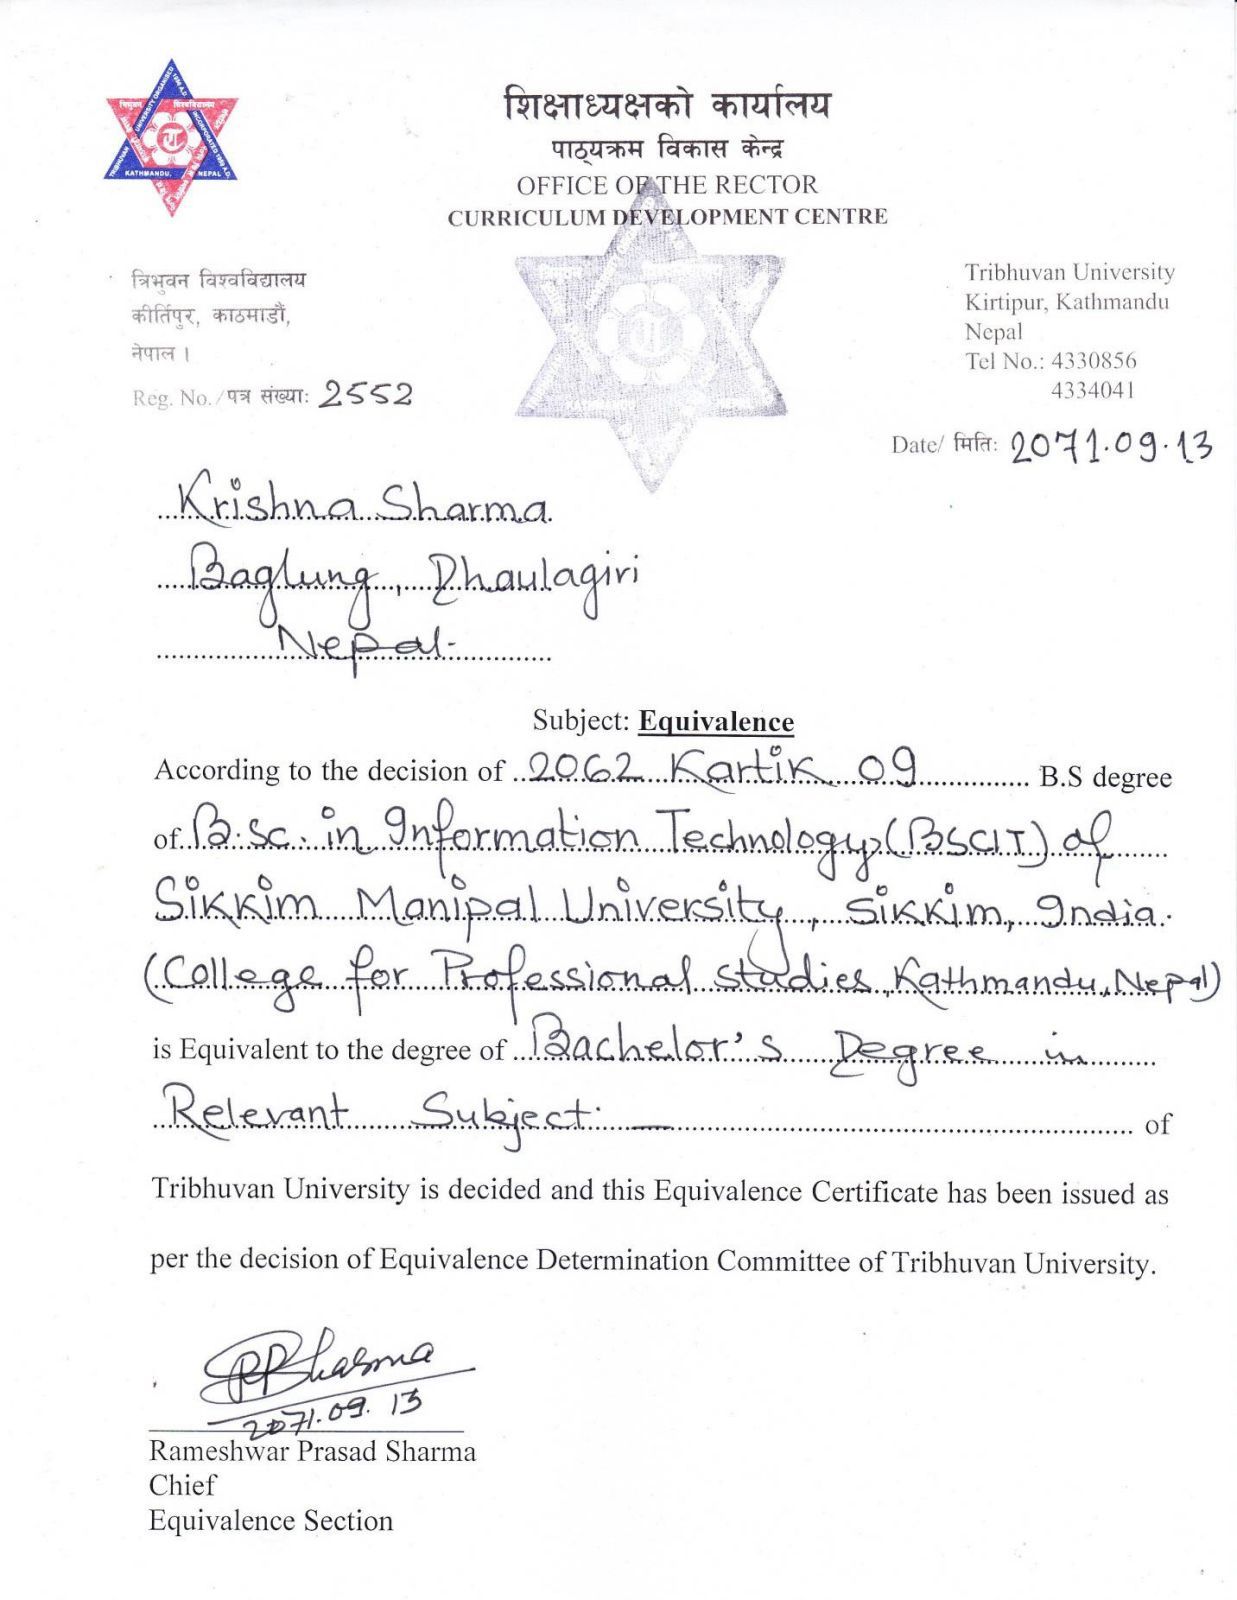 शिक्षाध्यक्षको कार्यालय
पाठ्यक्रम विकास केन्द्र
OFFICE OF THE RECTOR
CURRICULUM DEVELOPMENT CENTRE
त्रिभुवन विश्वविद्यालय
कीर्तिपुर, काठमाडौं,
नेपाल ।
Reg. No./पत्र संख्या: 2552
Tribhuvan University
Kirtipur, Kathmandu
Nepal
Tel No.: 4330856
4334041
Date/ मिति: 2071.09.13
Krishna Sharma
Baglung, Dhaulagiri
Nepal.
Subject: Equivalence
According to the decision of 2062 Kartik 09 B.S degree
of B.Sc. in Information Technology (BSCIT) of
Sikkim Manipal University, Sikkim, India.
(College for Professional Studies, Kathmandu, Nepal)
is Equivalent to the degree of Bachelor's Degree in
Relevant Subject. of
Tribhuvan University is decided and this Equivalence Certificate has been issued as
per the decision of Equivalence Determination Committee of Tribhuvan University.
RPSharma
2071.09.13
Rameshwar Prasad Sharma
Chief
Equivalence Section